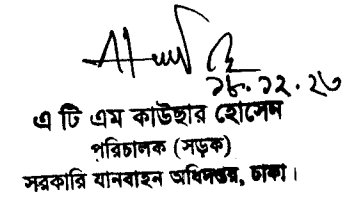 ১৮.১২.২৩
এ টি এম কাউছার হোসেন
পরিচালক (সড়ক)
সরকারি যানবাহন অধিদপ্তর, ঢাকা।